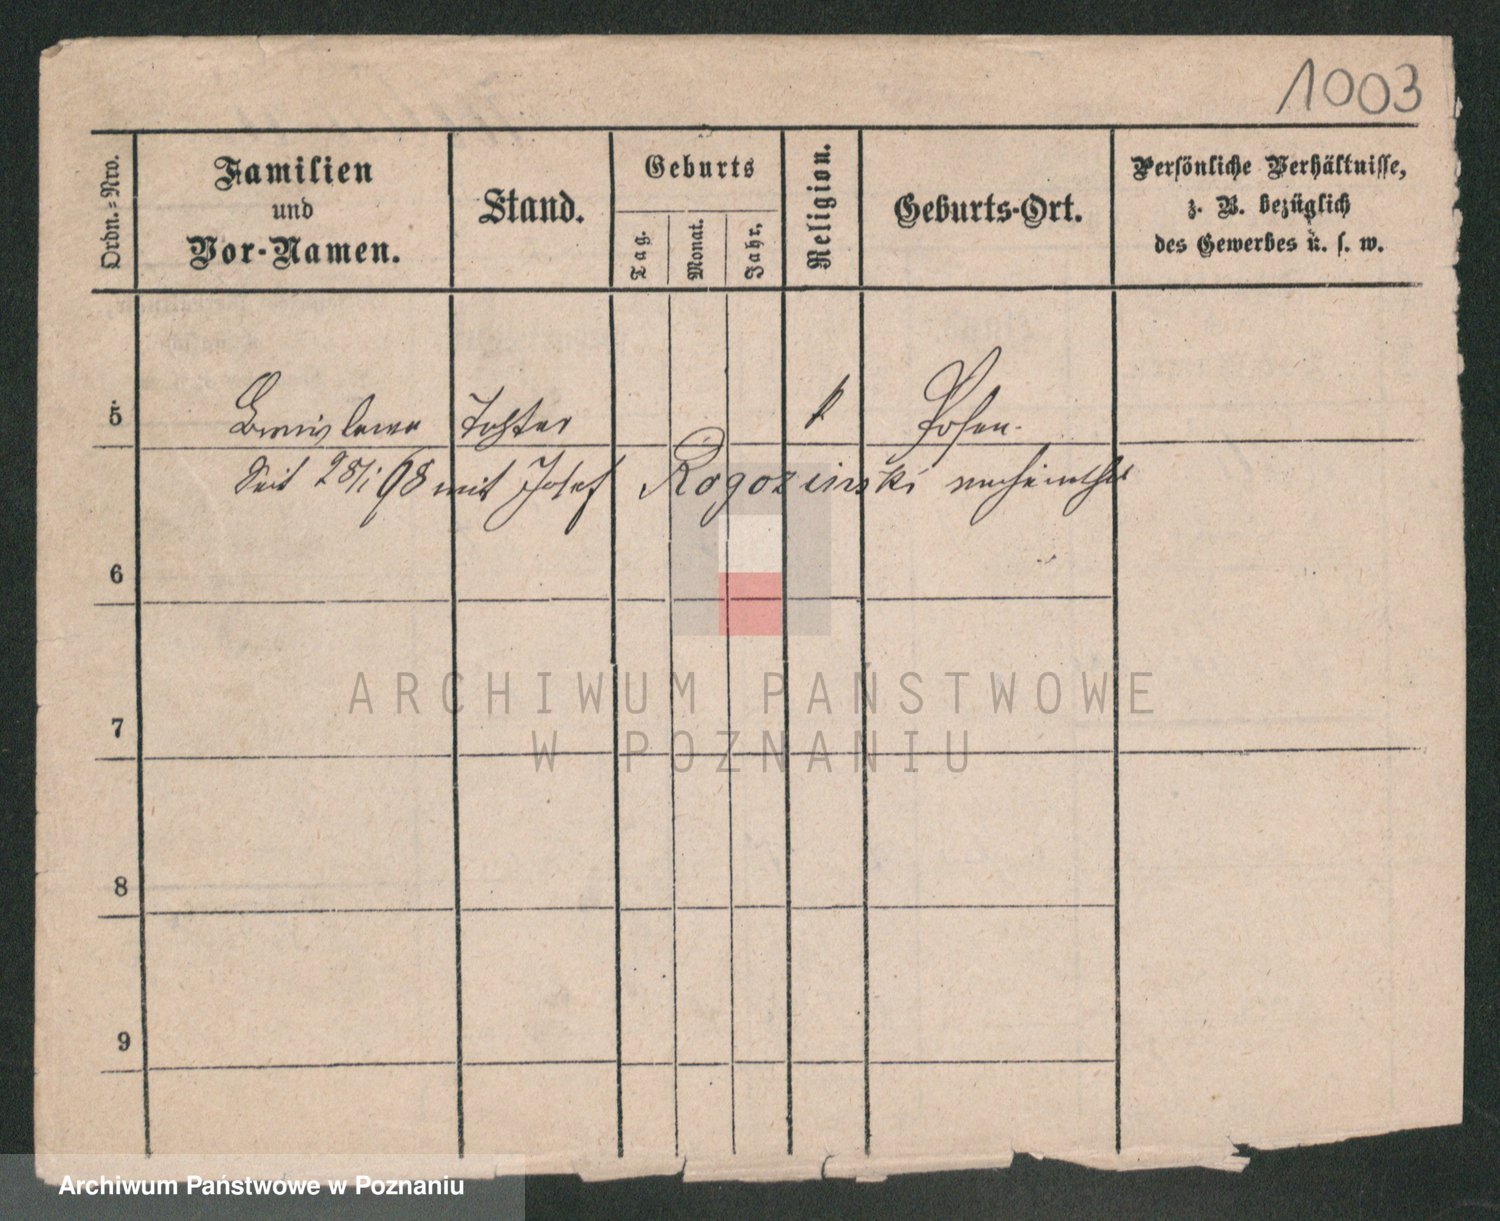 1003
Ordn.=Nro.
Familien
und
Vor-Namen.
Stand.
Geburts
Tag.
Monat.
Jahr.
Religion.
Geburts-Ort.
Persönliche Verhältnisse,
z. B. bezüglich
des Gewerbes u. s. w.
5 Bronislawa Tochter k Posen.
Seit 28/1 98 mit Josef Rogozinski verheirathet
6
7
8
9
ARCHIWUM PAŃSTWOWE
W POZNANIU
Archiwum Państwowe w Poznaniu